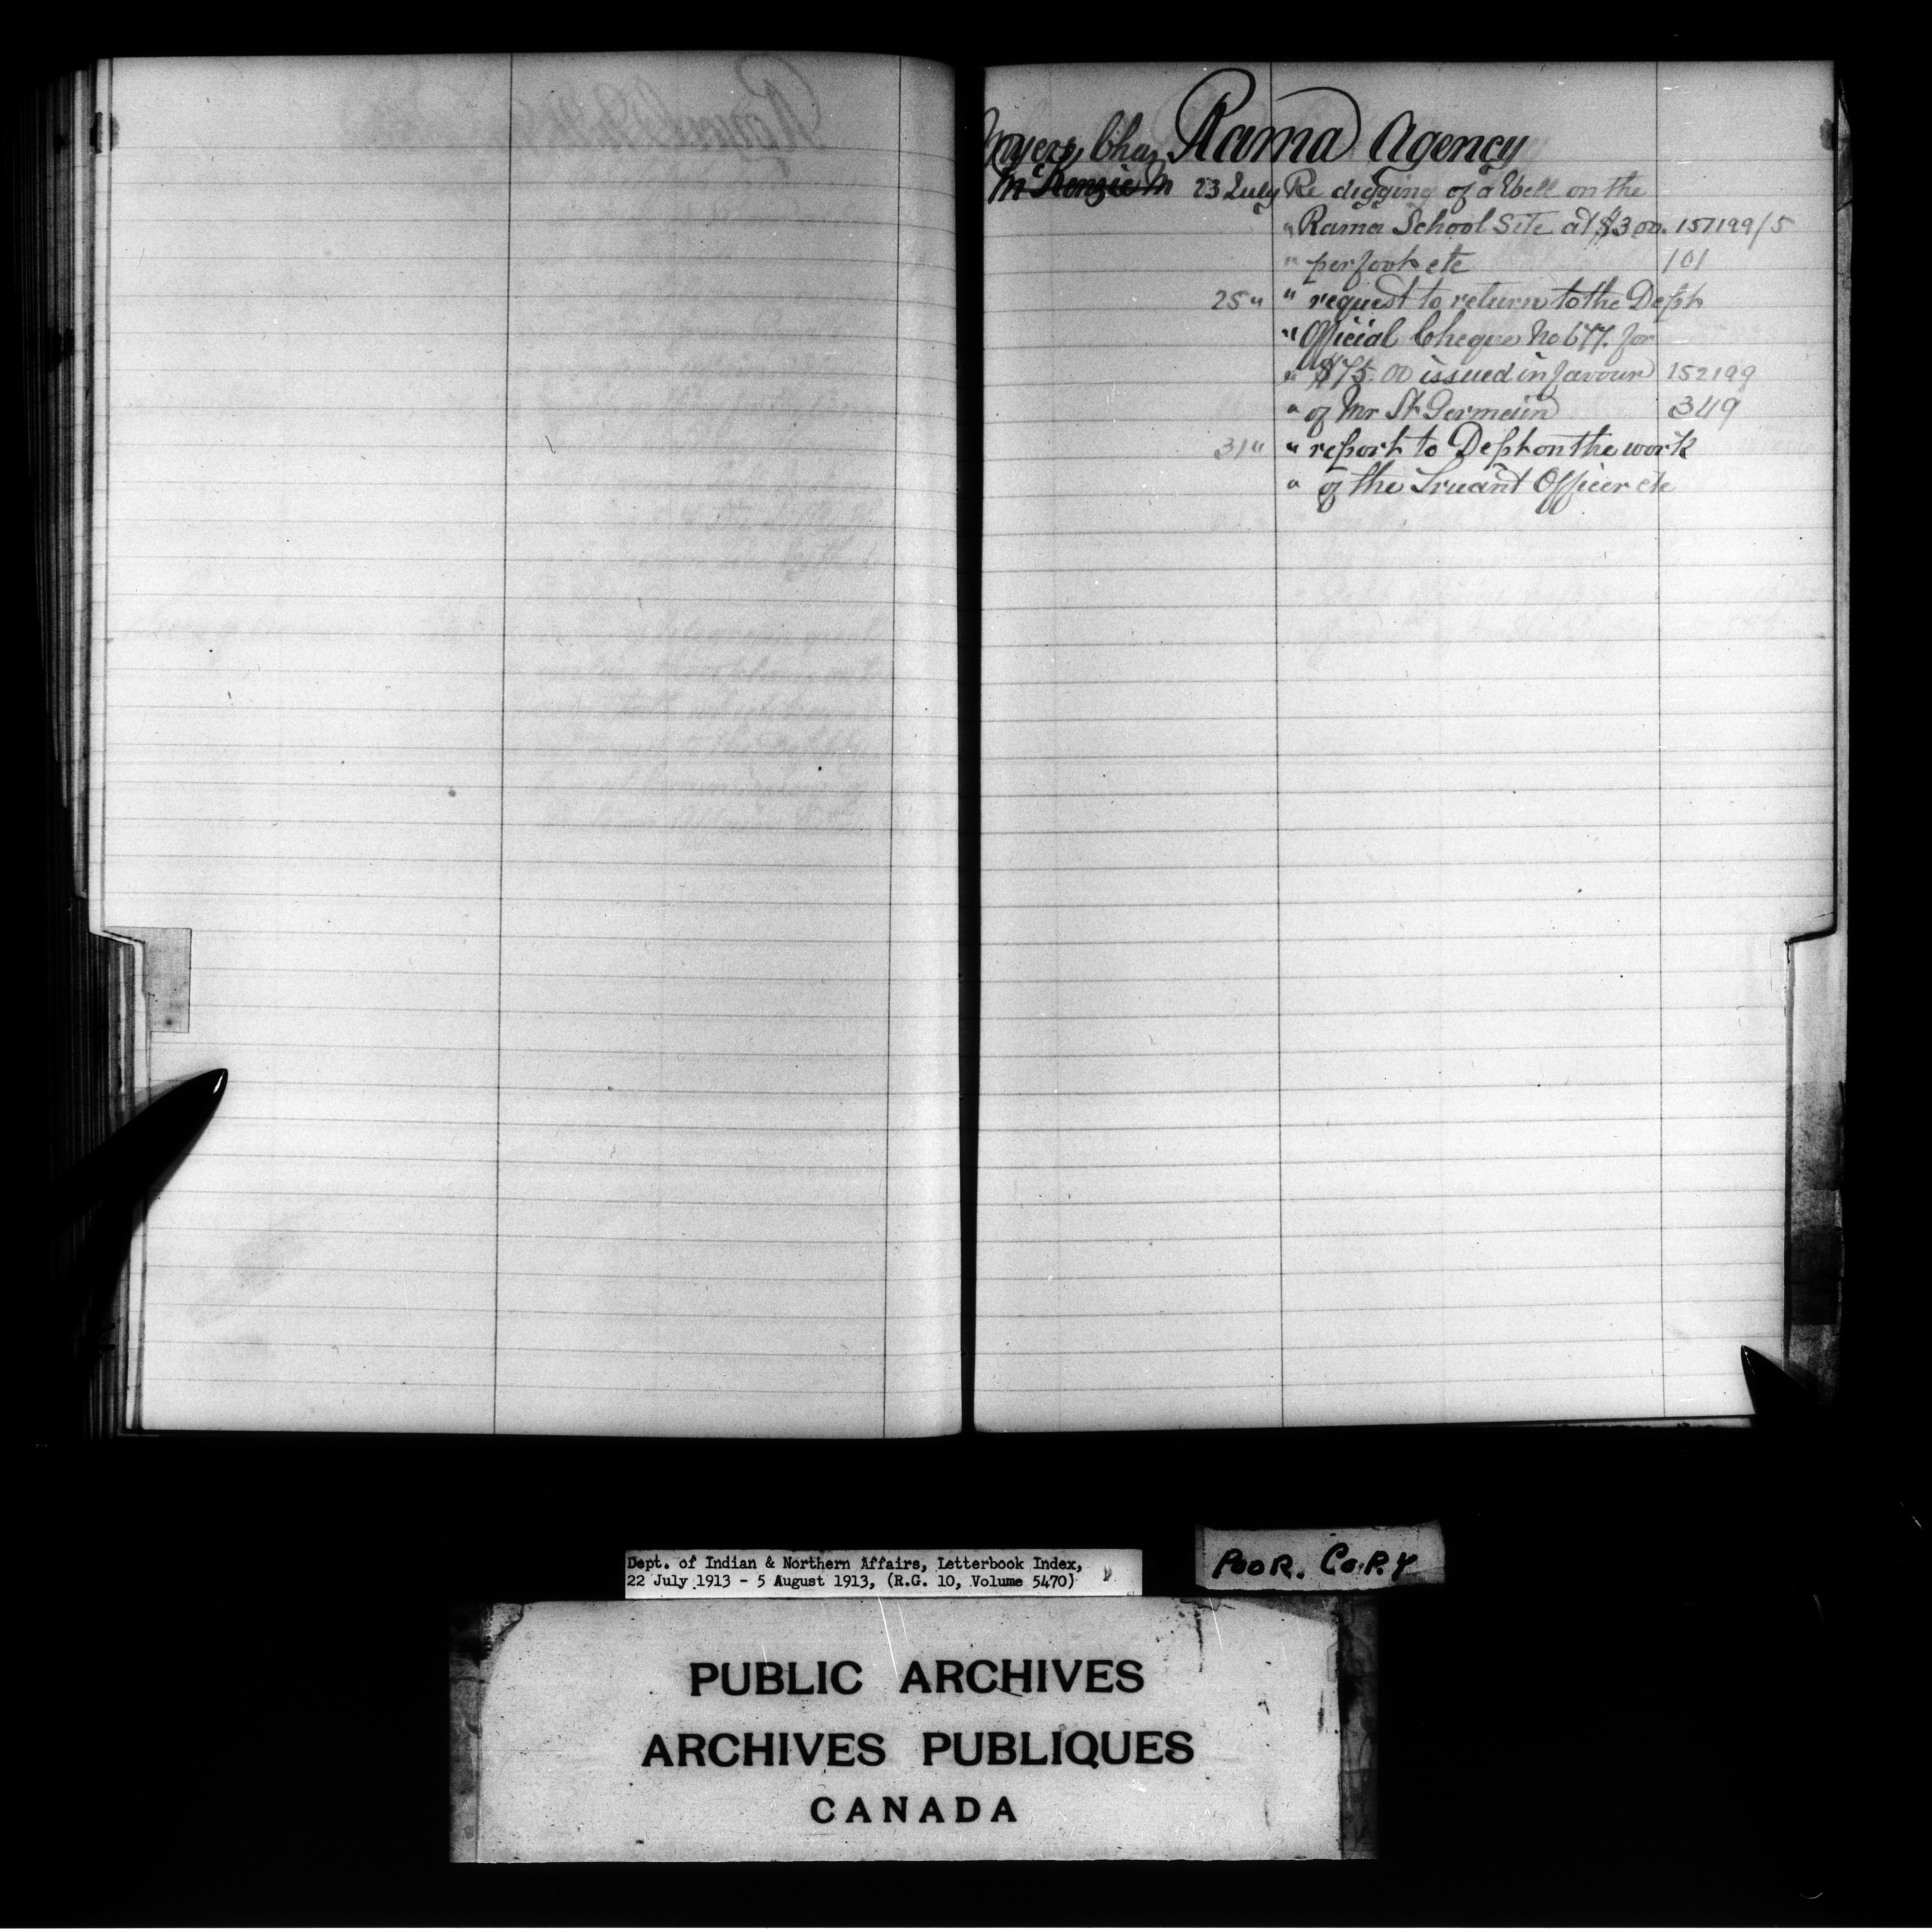 Myers, Chas Rama Agency
McKenzie M 23 July Re digging of a Well on the
" Rama School Site at $3.00. 151199/5
" per foot etc 101
25 " " request to return to the Dept
" Official Cheque No 677. for
" $75.00 issued in favour 152199
" of Mr St. Germain 349
31 " " report to Dept on the work
" of the Truant Officer etc
Dept. of Indian & Northern Affairs, Letterbook Index,
22 July 1913 - 5 August 1913, (R.G. 10, Volume 5470)
POOR. COPY
PUBLIC ARCHIVES
ARCHIVES PUBLIQUES
CANADA